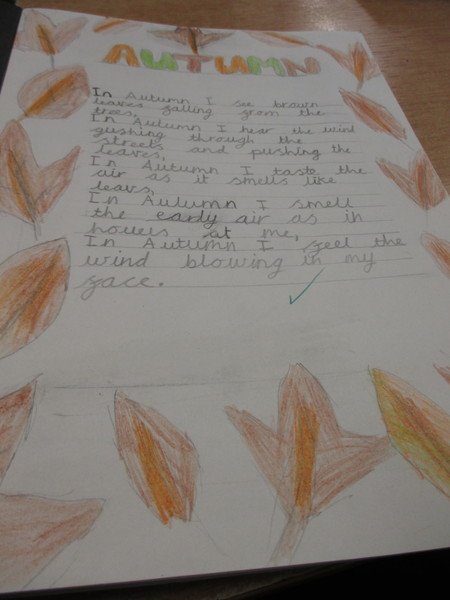 AUTUMN
In Autumn I see brown
leaves falling from the
trees,
In Autumn I hear the wind
gushing through the
streets and pushing the
leaves,
In Autumn I taste the
air as it smells like
leavs,
In Autumn I smell
the early air as in
houers at me,
In Autumn I feel the
wind blowing in my
face.